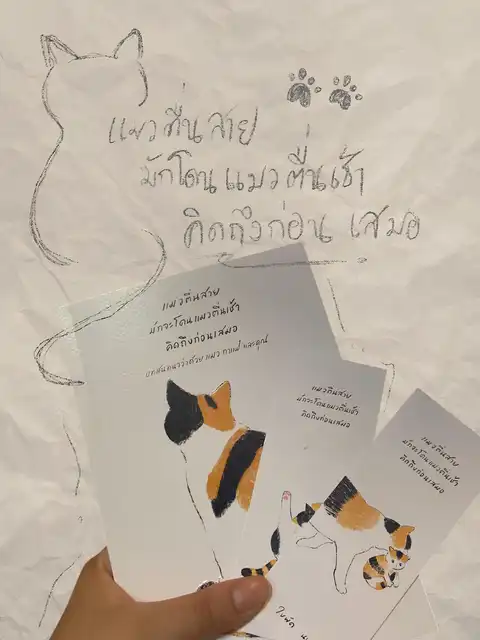 แมวตื่นสาย
มักโดนแมวตื่นเช้า
คิดถึงก่อน เสมอ
แมวตื่นสาย
มักจะโดนแมวตื่นเช้า
คิดถึงก่อนเสมอ
บทสนทนาว่าด้วย แมว กาแฟ และคุณ
แมวตื่นสาย
มักจะโดนแมวตื่นเช้า
คิดถึงก่อนเสมอ
แมวตื่นสาย
มักจะโดนแมวตื่นเช้า
คิดถึงก่อนเสมอ